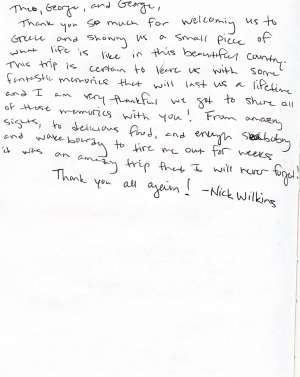 Theo, George, and George,
Thank you so much for welcoming us to
Greece and showing us a small piece of
what life is like in this beautiful country.
This trip is certain to leave us with some
fantastic memories that will last us a lifetime
and I am very thankful we got to share all
of those memories with you! From amazing
sights, to delicious food, and enough
and wakeboardy to tire me out for weeks
it was an amazing trip that I will never forget!
Thank you all again! -Nick Wilkins